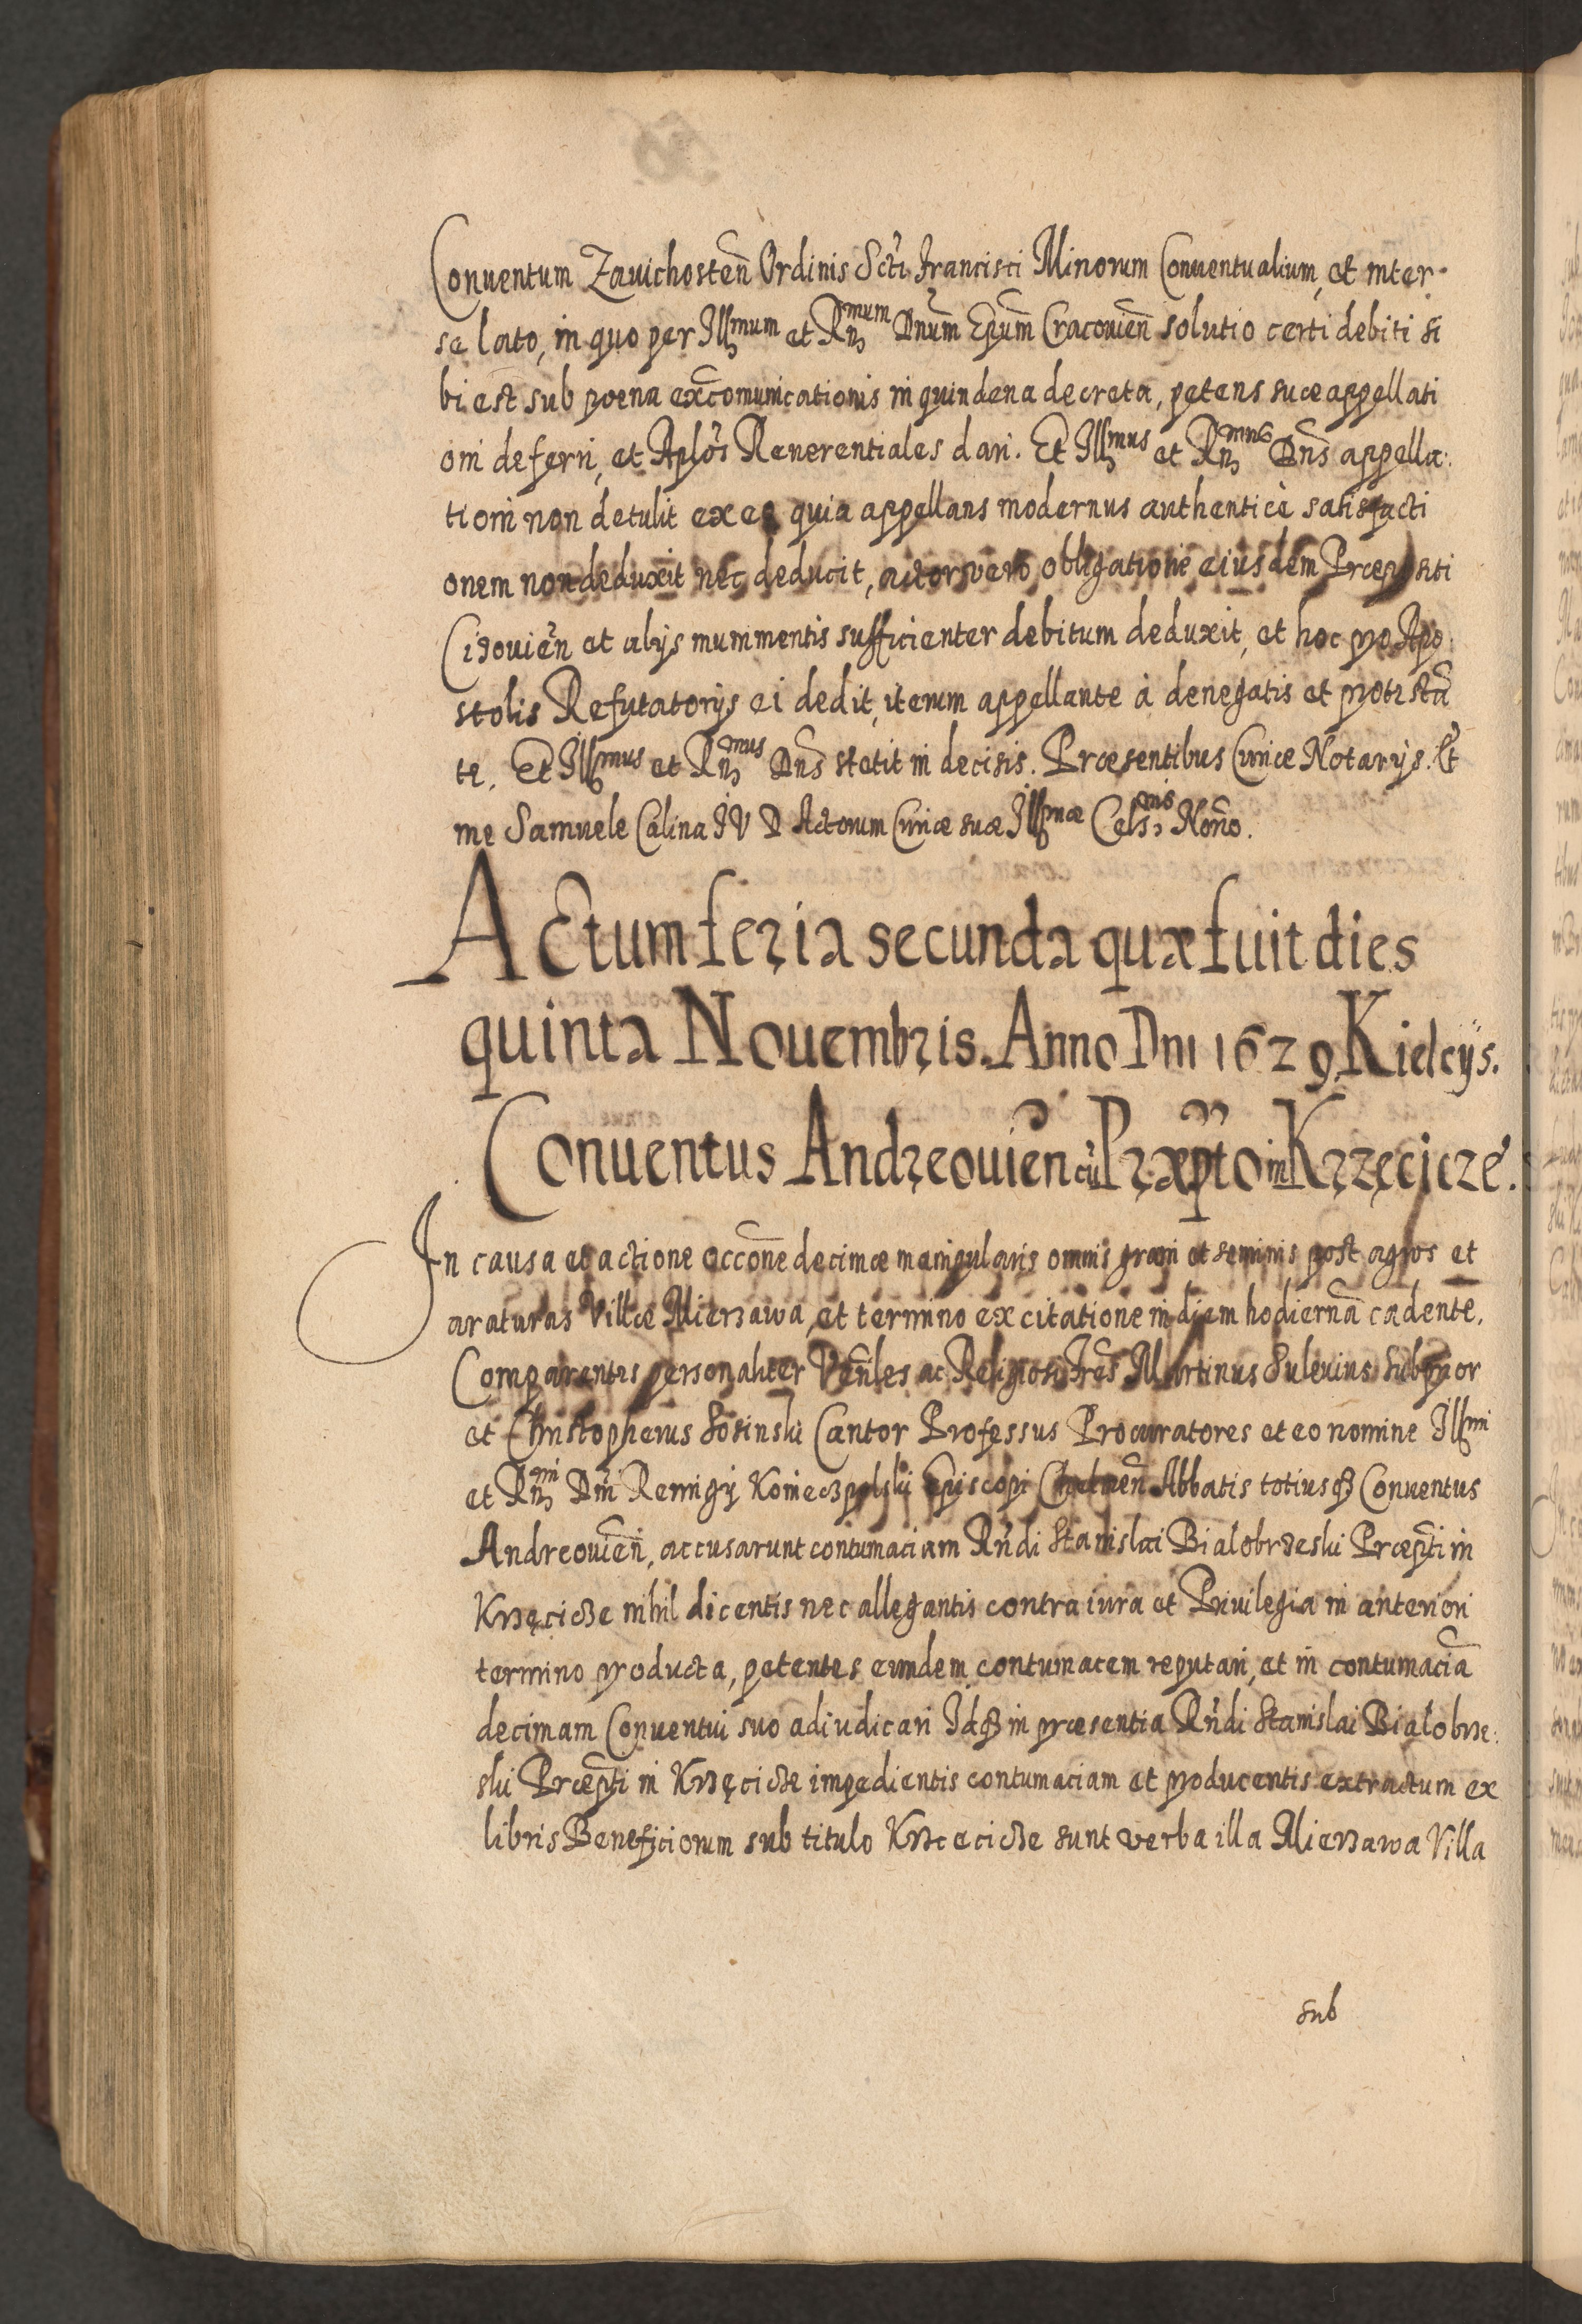 Conuentum Zauichosten̄ Ordinis Scti Francisci Minorum Conuentualium, et inter
se lato, in quo per Illmum et Rnmum Dnum Epum Cracouien̄ solutio certi debiti si
bi est sub poena excomunicationis in quindena decreta, petens suæ appellati
oni deferri, et Aplos Reuerentiales dari. Et Illmus et Rnmus Dns appella
tioni non detulit ex eo quia appellans modernus authenticè satisfacti
onem non deduxit nec deducit, actor vero obligatione eiusdem Præpositi
et alijs munimentis sufficienter debitum deduxit, et hoc pro Apo
stolis Refutatorijs ei dedit, iterum appellante à denegatis et protestā
te. Et Illmus et Rnmus Dns stetit in decisis. Præsentibus Curiæ Notarijs. Et
me Samuele Calina I V D Actorum Curiæ suæ Illmæ Celsnis Norio.
ACtum feria secunda quæ fuit dies
quinta Nouembris. Anno Dni 1629. Kielcijs.
Conuentus Andreouien̄ cū Præpto in Krzęcicze.
In causa et actione occōne decimæ manipularis omnis grani et seminis post agros et
araturas Villæ Mierzawa, et termino ex citatione in diem hodiernā cadente.
Comparentes personaliter Venles ac Religiosi Fres Martinus Suleuius Subprior
et Christopherus Sosinski Cantor Professus Procuratores et eo nomine Illmi
et Rnmi Dni Remigij Koniecpolski Episcopi Chelmen̄ Abbatis totiusq Conuentus
Andreouien̄, accusarunt contumaciam Rndi Stanislai Bialobrzeski Præpti in
Krzęcicze nihil dicentis nec allegantis contra iura et Priuilegia in anteriori
termino producta, petentes eundem contumacem reputari, et in contumaciā
decimam Conuentui suo adiudicari Idq in præsentia Rndi Stanislai Bialobrze
ski Præpti in Krzęcicze impedientis contumaciam et producentis extractum ex
libris Beneficiorum sub titulo Krzcecicze sunt verba illa Mierzawa Villa
sub